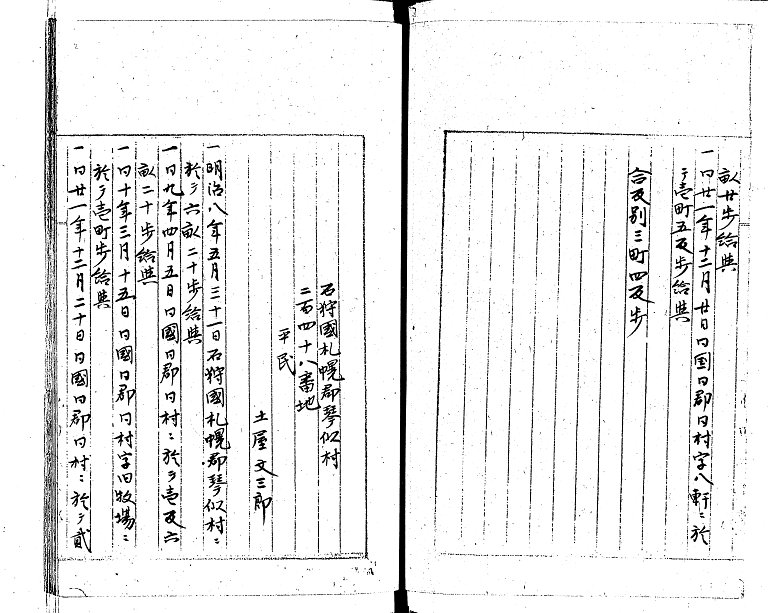 畝廿歩給與
一仝廿一年十二月廿日仝国仝郡仝村字八軒ニ於
テ壱町五反歩給與
合反別三町四反歩
石狩國札幌郡琴似村
二百四十八番地
平民
土屋文三郎
一明治八年五月三十一日石狩國札幌郡琴似村ニ
於テ六畝二十歩給與
一仝九年四月五日仝國仝郡仝村ニ於テ壱反六
畝二十歩給與
一仝十年三月十五日仝國仝郡仝村字旧牧場ニ
於テ壱町歩給與
一仝廿一年十二月二十日仝國仝郡仝村ニ於テ貳